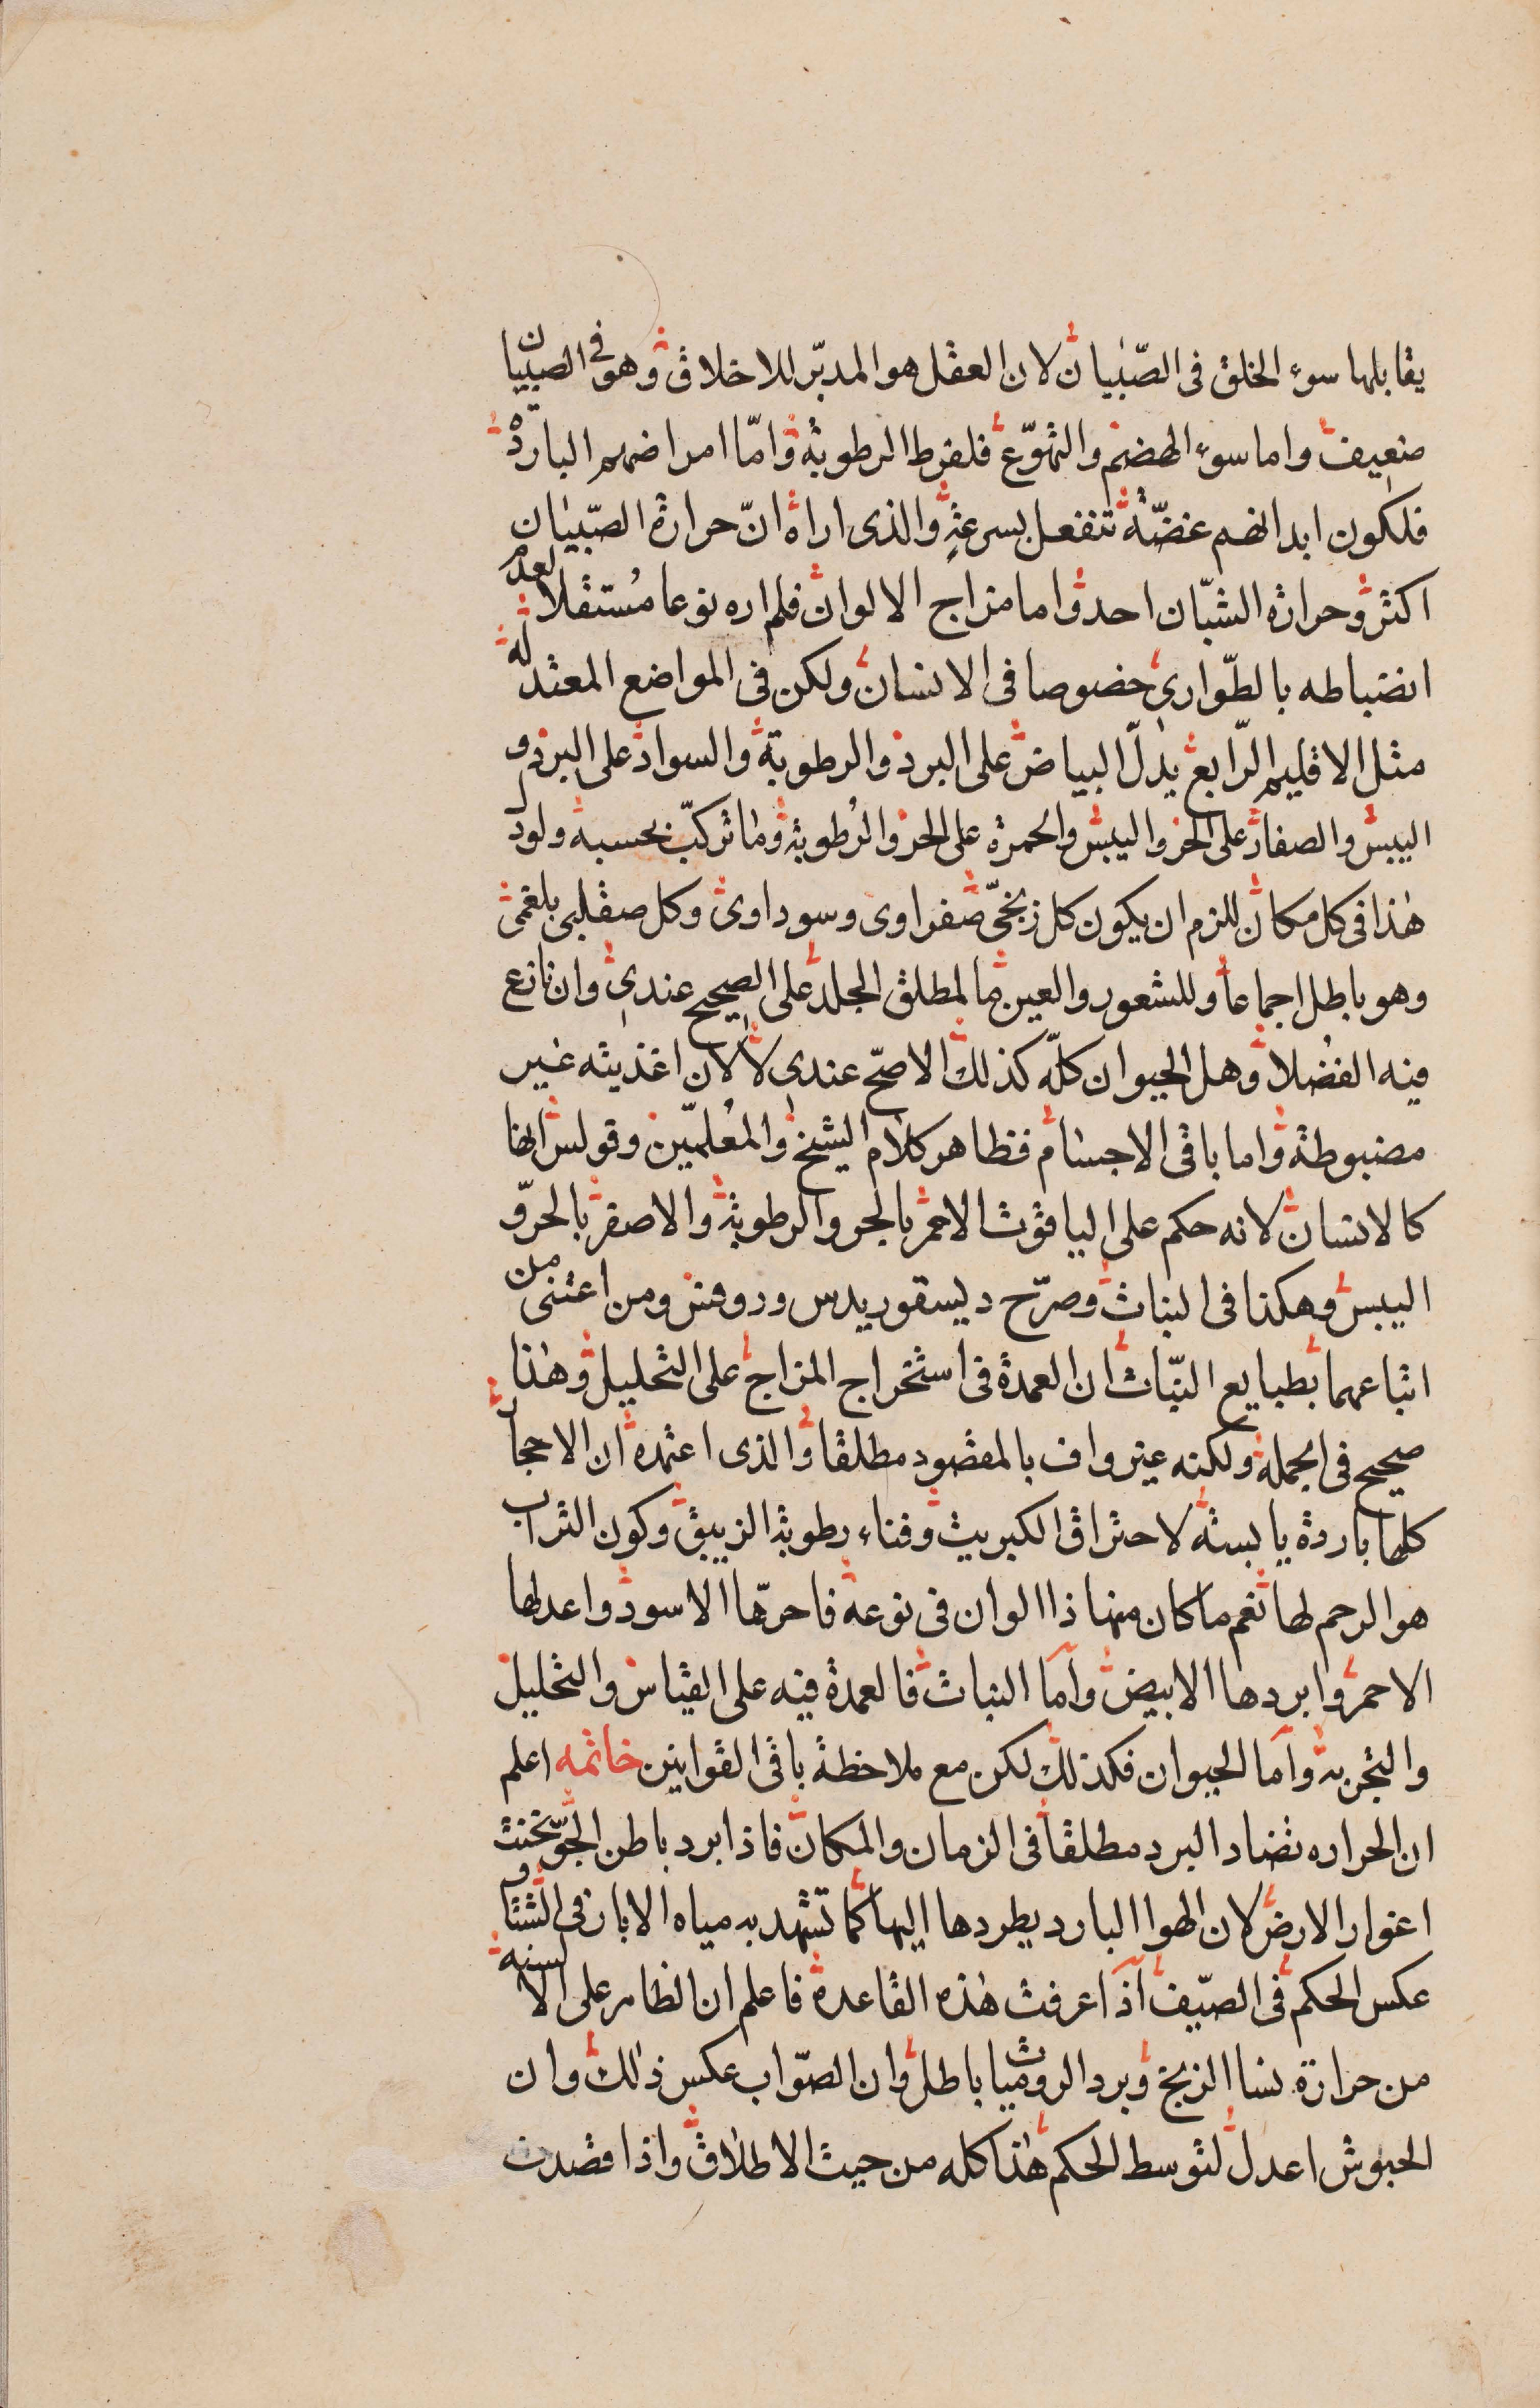 يقابلها سوء الخلق فى الصّبيان لان العقل هو المدبّر للاخلاق وهو فى الصبيان
ضعيف واما سوء الهضم والتهوّع فلفرط الرطوبة وامّا امراضهم الباردة
فلكون ابدانهم غضّة تنفعل بسرعةٍ والذى اراه انّ حرارة الصّبيان
اكثر وحرارة الشبّان احد واما مزاج الالوان فلم اره نوعا مُستقلا لعدم
انضباطه بالطّوارى خصوصا فى الانسان ولكن فى المواضع المعتدلة
مثل الاقليم الرّابع يدلّ البياض على البرد والرطوبة والسواد على البرد و
اليبس والصفار على الحر واليبس والحمرة على الحر والرُطوبة وما تركبّ بحسبه ولود
هٰذا فى كل مكان للزم ان يكون كل زنجىّ صفراوى وسوداوى وكل صقلبى بلغمى
وهو باطل اجماعا وللشعور والعين ما لمطلق الجلد على الصحيح عندى وان نازع
فيه الفضُلا وهل الحيوان كلّه كذلك الاصحّ عندى لا لان اغذيته غير
مضبوطة واما باقى الاجسام فظاهر كلام الشيخ والمُعلمّين وقولس انها
كالانسان لانه حكم على الياقوت الاحمر بالحر والرطوبة والاصفر بالحرّ و
اليبس وهكذا فى النبات وصرّح ديسقوريدس وروفس ومن اعتنى من
اتباعهما بطبايع النّبات ان العمدة فى استخراج المزاج على التحليل وهٰذا
صحيح فى الجملة ولكنه غير واف بالمقصود مطلقا والذى اعتمده ان الاحجار
كلها باردة يابسة لاحتراق الكبريت وفناء رطوبة الزيبق وكون التراب
هو الرحم لها نعم ما كان منها ذا الوان فى نوعه فاحرّها الاسود واعدلها
الاحمر وابردها الابيض وآما النبات فالعمدة فيه على القياس والتحليل
والتجربة وآما الحيوان فكذلك لكن مع ملاحظة باقى القوانين خاتمه اعلم
ان الحراره تضاد البرد مطلقا فى الزمان والمكان فاذا برد باطن الجوّ سخنت
اغوار الارض لان الهوا البارد يطردها اليها كما تشهد به مياه الابار فى الشتا و
عكس الحكم فى الصيّف آذا عرفت هٰذه القاعدة فاعلم ان الظاهر على الالسنة
من حرارة نسا الزنج وبرد الروميات باطل وان الصّواب عكس ذٰلك وان
الحبوش اعدل لتوسط الحكم هٰذا كله من حيث الاطلاق واذا قصدت